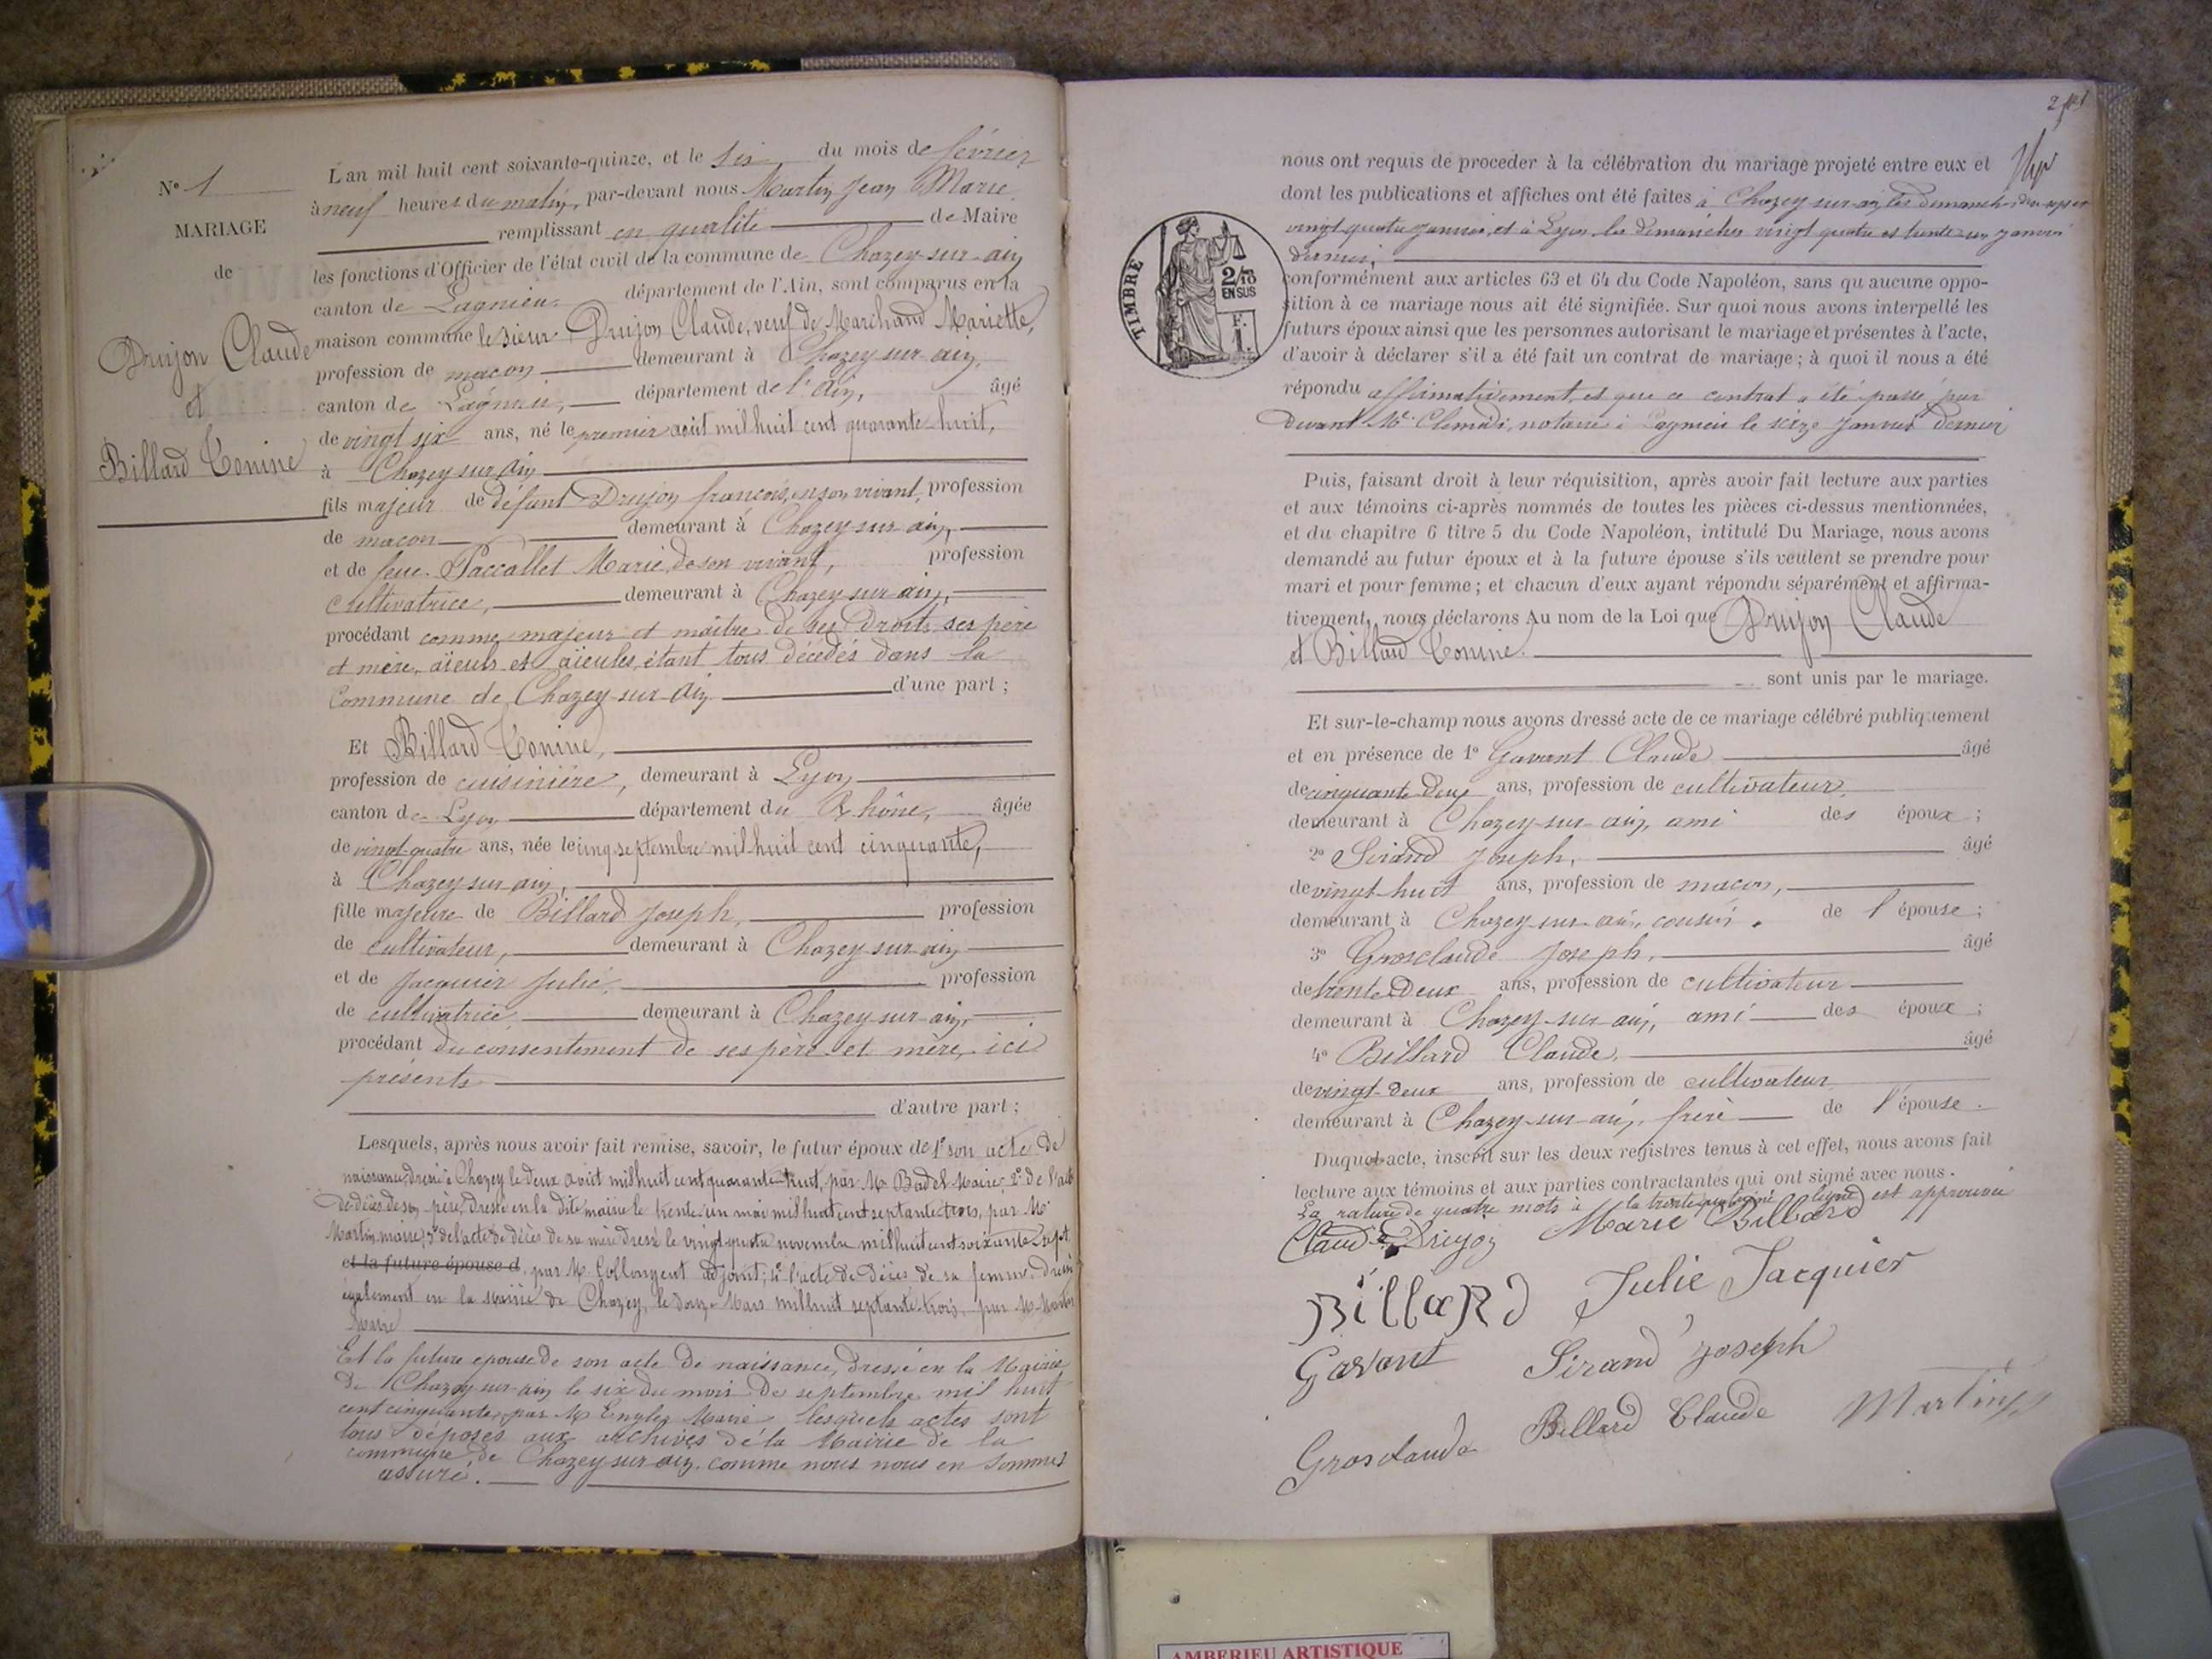 N° 1
MARIAGE
de
Drujon Claude
et
Billard Tonine
L'an mil huit cent soixante-quinze, et le six du mois de février
à neuf heures du matin, par-devant nous Martin Jean Marie
remplissant en qualité de Maire
les fonctions d'Officier de l'état civil de la commune de Chazey-sur-ain
canton de Lagnieu département de l'Ain, sont comparus en la
maison commune le sieur Drujon Claude, veuf de Marchand Mariette,
profession de maçon demeurant à Chazey sur ain,
canton de Lagnieu, département de l'Ain, âgé
de vingt six ans, né le premier août mil huit cent quarante-huit,
à Chazey sur Ain
fils majeur de défunt Drujon françois, en son vivant, profession
de macon demeurant à Chazey sur ain,
et de feue Paccallet Marie, de son vivant, profession
cultivatrice, demeurant à Chazey-sur-ain,
procédant comme majeur et maître de ses droits ses père
et mère, aïeuls et aïeules étant tous décédés dans la
Commune de Chazey-sur-Ain d'une part ;
Et Billard Tonine,
profession de cuisinière, demeurant à Lyon
canton de Lyon département du Rhône, âgée
de vingt-quatre ans, née le cinq septembre mil huit cent cinquante,
à Chazey sur ain,
fille majeure de Billard Joseph, profession
de cultivateur, demeurant à Chazey-sur-ain
et de Jacquier Julie, profession
de cultivatrice, demeurant à Chazey-sur-ain,
procédant du consentement de ses père et mère, ici
présents
d'autre part ;
Lesquels, après nous avoir fait remise, savoir, le futur époux de 1° son acte de
naissance, dressé à Chazey le deux août mil huit cent quarante-huit, par Mr Badel Maire, 2° de l'acte
de décès de son père, dressé en la dite mairie le trente un mai mil huit cent septante-trois, par Mr
Martin maire, 3° de l'acte de décès de sa mère dressé le vingt quatre novembre mil huit cent soixante sept
et la future épouse d par Mr Collongeat adjoint; 4° l'acte de décès de sa femme. Dressé
également en la Mairie de Chazey, le douze Mars mil huit septante-trois, par Mr Martin
Maire
Et la future épouse de son acte de naissance, dressé en la Mairie
de Chazey-sur-ain le six du mois de septembre mil huit
cent cinquante, par Mr Maire, lesquels actes sont
tous déposés aux archives de la Mairie de la
commune de Chazey-sur-ain, comme nous nous en sommes
assuré.
nous ont requis de proceder à la célébration du mariage projeté entre eux et
dont les publications et affiches ont été faites à Chazey-sur-ain les dimanches
vingt quatre janvier, et à Lyon les dimanches vingt quatre et trente-un janvier
dernier,
TIMBRE
2/10
EN SUS
F.
1.
conformément aux articles 63 et 64 du Code Napoléon, sans qu'aucune oppo-
sition à ce mariage nous ait été signifiée. Sur quoi nous avons interpellé les
futurs époux ainsi que les personnes autorisant le mariage et présentes à l'acte,
d'avoir à déclarer s'il a été fait un contrat de mariage ; à quoi il nous a été
répondu affirmativement, et que ce contrat a été passé par
devant Me notaire à Lagnieu le seize Janvier dernier
Puis, faisant droit à leur réquisition, après avoir fait lecture aux parties
et aux témoins ci-après nommés de toutes les pièces ci-dessus mentionnées,
et du chapitre 6 titre 5 du Code Napoléon, intitulé Du Mariage, nous avons
demandé au futur époux et à la future épouse s'ils veulent se prendre pour
mari et pour femme ; et chacun d'eux ayant répondu séparément et affirma-
tivement, nous déclarons Au nom de la Loi que Drujon Claude
et Billard Tonine.
sont unis par le mariage.
Et sur-le-champ nous avons dressé acte de ce mariage célébré publiquement
et en présence de 1° Gavant Claude âgé
de cinquante deux ans, profession de cultivateur,
demeurant à Chazey-sur-ain, ami des époux ;
2° Sirand Joseph, âgé
de vingt-huit ans, profession de macon,
demeurant à Chazey-sur-ain, cousin, de l'épouse ;
3° Grosclaude Joseph, âgé
de trente-deux ans, profession de cultivateur
demeurant à Chazey-sur-ain, ami des époux ;
4° Billard Claude, âgé
de vingt-deux ans, profession de cultivateur
demeurant à Chazey-sur-ain, frère de l'épouse.
Duquel acte, inscrit sur les deux registres tenus à cet effet, nous avons fait
lecture aux témoins et aux parties contractantes qui ont signé avec nous.
La rature de quatre mots à la ligne est approuvée
Claude Drujon Marie Billard
Billard Julie Jacquier
Gavant Sirand Joseph
Grosclaude Billard Claude Martin
AMBERIEU ARTISTIQUE